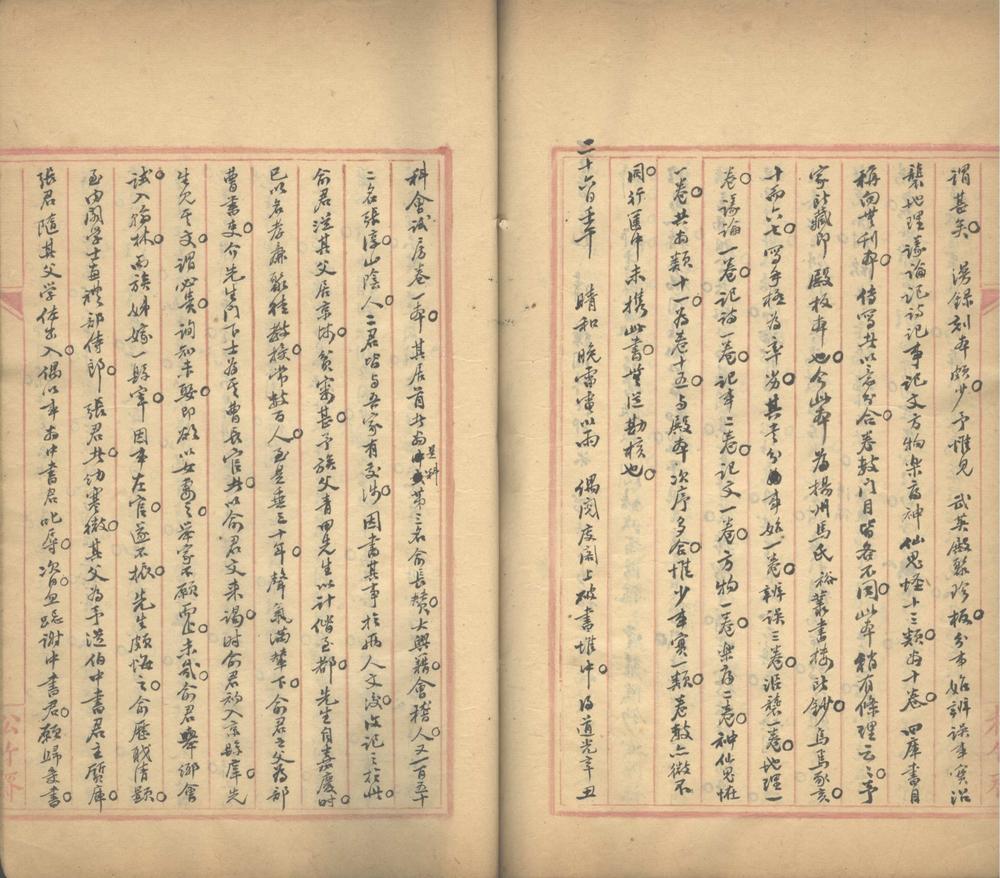 謂甚矣 漫錄刻本頗少予惟見 武英殿聚珍板分事始辨誤事實沿
襲地理議論記詩記事記文方物樂府神仙鬼怪十三類為十卷四庫書目
稱向無刊本傳寫者以意分合卷數門目皆各不同此本稍有條理云云予
家所藏即 殿板本也今此本為揚州馬氏裕叢書樓所鈔烏焉豕亥
十而六七寫手極為率劣其書分事始一卷辨誤三卷沿襲一卷地理一
卷議論一卷記詩一卷記事二卷記文一卷方物一卷樂府二卷神仙鬼怪
一卷共為類十一為卷十五與殿本次序多合惟少事實一類卷數亦微不
同行匧中未携此書無從勘核也
二十六日 晴和晚雷電以雨 偶閱庋閣上破書堆中得道光辛丑
科會試房卷一本其居首者為是科第三名俞長贊大興籍會稽人又一百五十
二名張淳山陰人二君皆與吾家有交涉因書其事於兩人文後復記之於此
俞君從其父居京師貧窶甚予族父青田先生以計偕至都先生自嘉慶時
已以名孝廉聚徒教授常數百人至是垂三十年聲氣滿輦下俞君之父為部
曹書吏介先生門下士為其曹長官者以俞君文來謁時俞君初入京縣庠先
生見其文謂必貴詢知未娶即欲以女妻之舉家不願而止未幾俞君舉鄉會
試入翰林而族姊嫁一縣宰因事左官遂不振先生頗悔之俞歷職清顯
至內閣學士直禮部侍郎張君者幼寒微其父為予從伯中書君主質庫
張君隨其父學徒出入偶以事為中書君叱辱次日忽跽謝中書君願歸受書